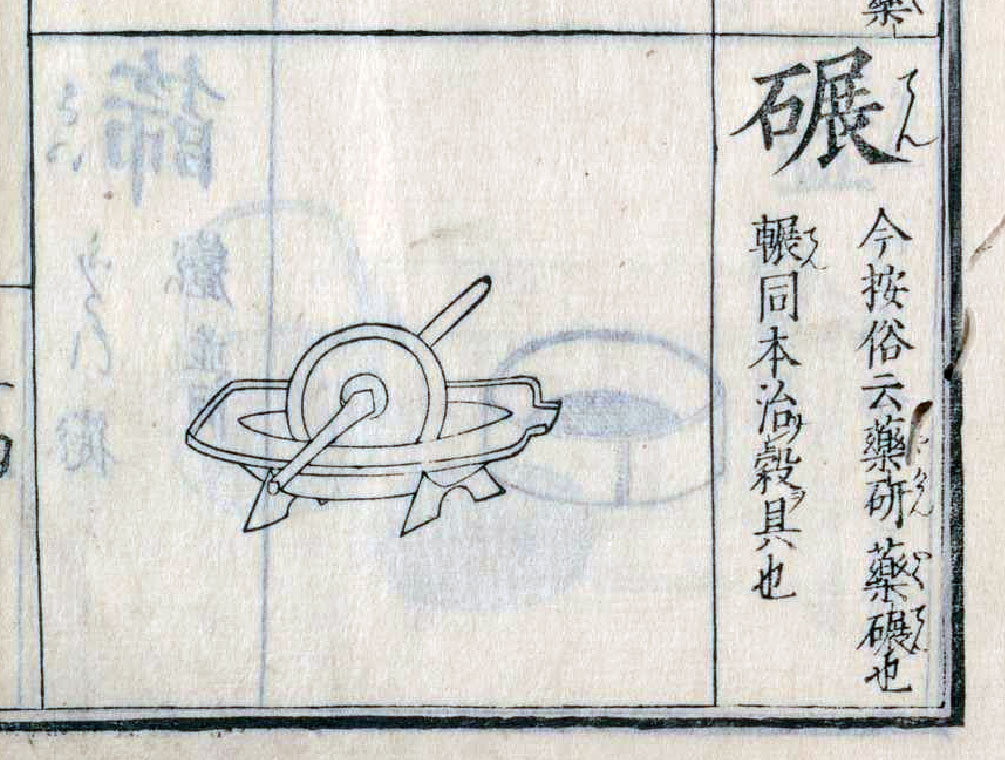 碾 てん
今按俗云藥研 藥碾也
輾同本治ノ穀ヲ具也
てん
やくてん
藥